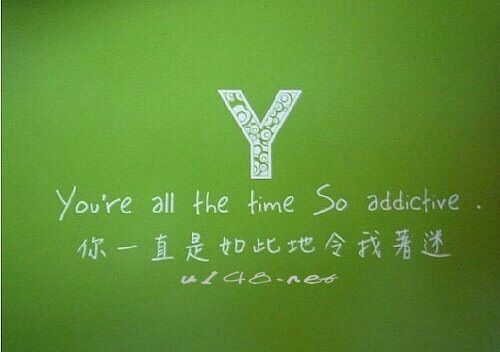 Y
You're all the time So addictive .
你一直是如此地令我著迷
u148.net